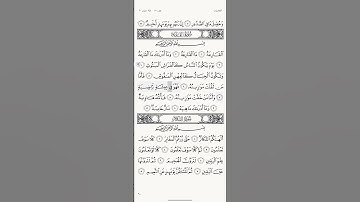 وَحُصِّلَ مَا فِي ٱلصُّدُورِ إِنَّ رَبَّهُم بِهِمْ يَوْمَئِذٍ لَّخَبِيرٌ
سُورَةُ القَارِعَةِ
بِسْمِ ٱللَّهِ ٱلرَّحْمَٰنِ ٱلرَّحِيمِ
ٱلْقَارِعَةُ مَا ٱلْقَارِعَةُ وَمَآ أَدْرَىٰكَ مَا ٱلْقَارِعَةُ
يَوْمَ يَكُونُ ٱلنَّاسُ كَٱلْفَرَاشِ ٱلْمَبْثُوثِ
وَتَكُونُ ٱلْجِبَالُ كَٱلْعِهْنِ ٱلْمَنفُوشِ فَأَمَّا
مَن ثَقُلَتْ مَوَٰزِينُهُۥ فَهُوَ فِي عِيشَةٍ رَّاضِيَةٍ
وَأَمَّا مَنْ خَفَّتْ مَوَٰزِينُهُۥ فَأُمُّهُۥ هَاوِيَةٌ
وَمَآ أَدْرَىٰكَ مَا هِيَهْ نَارٌ حَامِيَةٌۢ
سُورَةُ التَّكَاثُرِ
بِسْمِ ٱللَّهِ ٱلرَّحْمَٰنِ ٱلرَّحِيمِ
أَلْهَىٰكُمُ ٱلتَّكَاثُرُ حَتَّىٰ زُرْتُمُ ٱلْمَقَابِرَ كَلَّا سَوْفَ
تَعْلَمُونَ ثُمَّ كَلَّا سَوْفَ تَعْلَمُونَ كَلَّا لَوْ تَعْلَمُونَ
عِلْمَ ٱلْيَقِينِ لَتَرَوُنَّ ٱلْجَحِيمَ ثُمَّ لَتَرَوُنَّهَا
عَيْنَ ٱلْيَقِينِ ثُمَّ لَتُسْـَٔلُنَّ يَوْمَئِذٍ عَنِ ٱلنَّعِيمِ